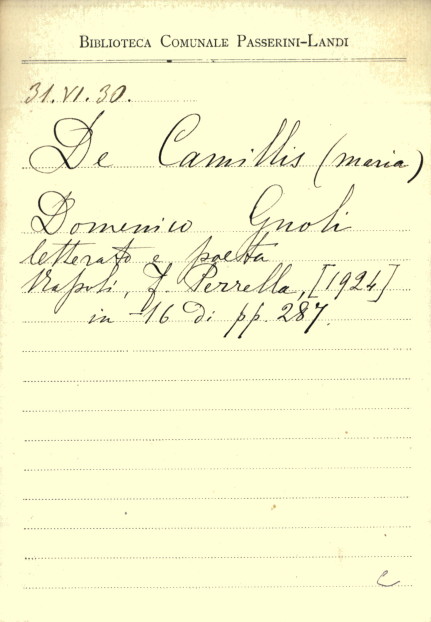 BIBLIOTECA COMUNALE PASSERINI-LANDI
31.VI.30.
De Camillis (maria)
Domenico Gnoli
letterato e poeta
Napoli, F. Perrella, [1924]
in -16 di pp. 287.
C